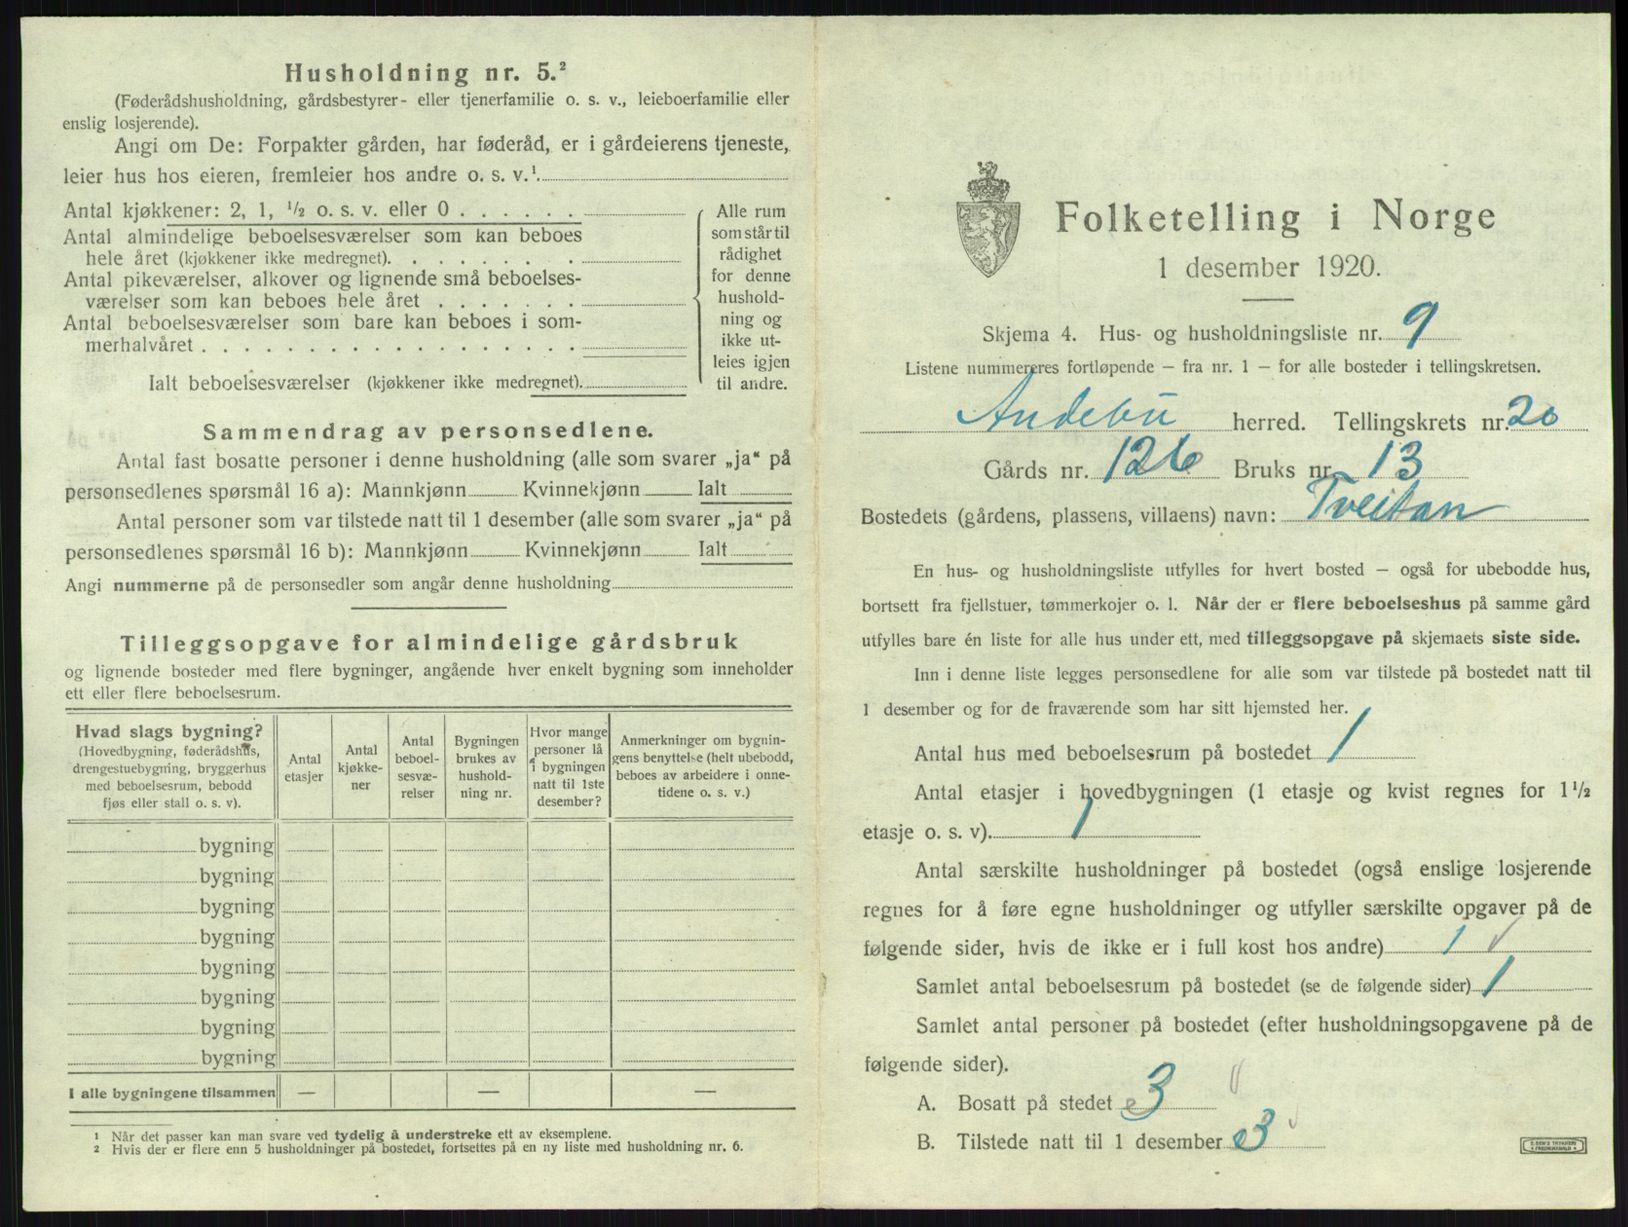 Husholdning nr. 5.²
(Føderådshusholdning, gårdsbestyrer- eller tjenerfamilie o. s. v., leieboerfamilie eller
enslig losjerende).
Angi om De: Forpakter gården, har føderåd, er i gårdeierens tjeneste,
leier hus hos eieren, fremleier hos andre o. s. v.¹
Antal kjøkkener: 2, 1, ½ o. s. v. eller 0 . . . . . .
Antal almindelige beboelsesværelser som kan beboes
hele året (kjøkkener ikke medregnet). . . . . . . .
Antal pikeværelser, alkover og lignende små beboelses-
værelser som kan beboes hele året . . . . . . .
Antal beboelsesværelser som bare kan beboes i som-
merhalvåret . . . . . . . . . . . . . . . . . .
Ialt beboelsesværelser (kjøkkener ikke medregnet).
Alle rum
som står til
rådighet
for denne
hushold-
ning og
ikke ut-
leies igjen
til andre.
Sammendrag av personsedlene.
Antal fast bosatte personer i denne husholdning (alle som svarer „ja“ på
personsedlenes spørsmål 16 a): Mannkjønn Kvinnekjønn Ialt
Antal personer som var tilstede natt til 1 desember (alle som svarer „ja“ på
personsedlenes spørsmål 16 b): Mannkjønn Kvinnekjønn Ialt
Angi nummerne på de personsedler som angår denne husholdning
Tilleggsopgave for almindelige gårdsbruk
og lignende bosteder med flere bygninger, angående hver enkelt bygning som inneholder
ett eller flere beboelsesrum.
Hvad slags bygning?
(Hovedbygning, føderådshus,
drengestuebygning, bryggerhus
med beboelsesrum, bebodd
fjøs eller stall o. s. v.).
Antal
etasjer
Antal
kjøkke-
ner
Antal
beboel-
sesvæ-
relser
Bygningen
brukes av
hushold-
ning nr.
Hvor mange
personer lå
i bygningen
natt til 1ste
desember?
Anmerkninger om bygnin-
gens benyttelse (helt ubebodd,
beboes av arbeidere i onne-
tidene o. s. v.)
bygning
bygning
bygning
bygning
bygning
bygning
bygning
bygning
I alle bygningene tilsammen — — —
1 Når det passer kan man svare ved tydelig å understreke ett av eksemplene.
2 Hvis der er flere enn 5 husholdninger på bostedet, fortsettes på en ny liste med husholdning nr. 6.
Folketelling i Norge
1 desember 1920.
Skjema 4. Hus- og husholdningsliste nr. 9
Listene nummereres fortløpende — fra nr. 1 — for alle bosteder i tellingskretsen.
Andebu herred. Tellingskrets nr. 20
Gårds nr. 126 Bruks nr. 13
Bostedets (gårdens, plassens, villaens) navn: Tveitan
En hus- og husholdningsliste utfylles for hvert bosted — også for ubebodde hus,
bortsett fra fjellstuer, tømmerkojer o. l. Når der er flere beboelseshus på samme gård
utfylles bare én liste for alle hus under ett, med tilleggsopgave på skjemaets siste side.
Inn i denne liste legges personsedlene for alle som var tilstede på bostedet natt til
1 desember og for de fraværende som har sitt hjemsted her.
Antal hus med beboelsesrum på bostedet 1
Antal etasjer i hovedbygningen (1 etasje og kvist regnes for 1½
etasje o. s. v). 1
Antal særskilte husholdninger på bostedet (også enslige losjerende
regnes for å føre egne husholdninger og utfyller særskilte opgaver på de
følgende sider, hvis de ikke er i full kost hos andre) 1 ✓
Samlet antal beboelsesrum på bostedet (se de følgende sider) 1
Samlet antal personer på bostedet (efter husholdningsopgavene på de
følgende sider).
A. Bosatt på stedet 3 ✓
B. Tilstede natt til 1 desember 3 ✓